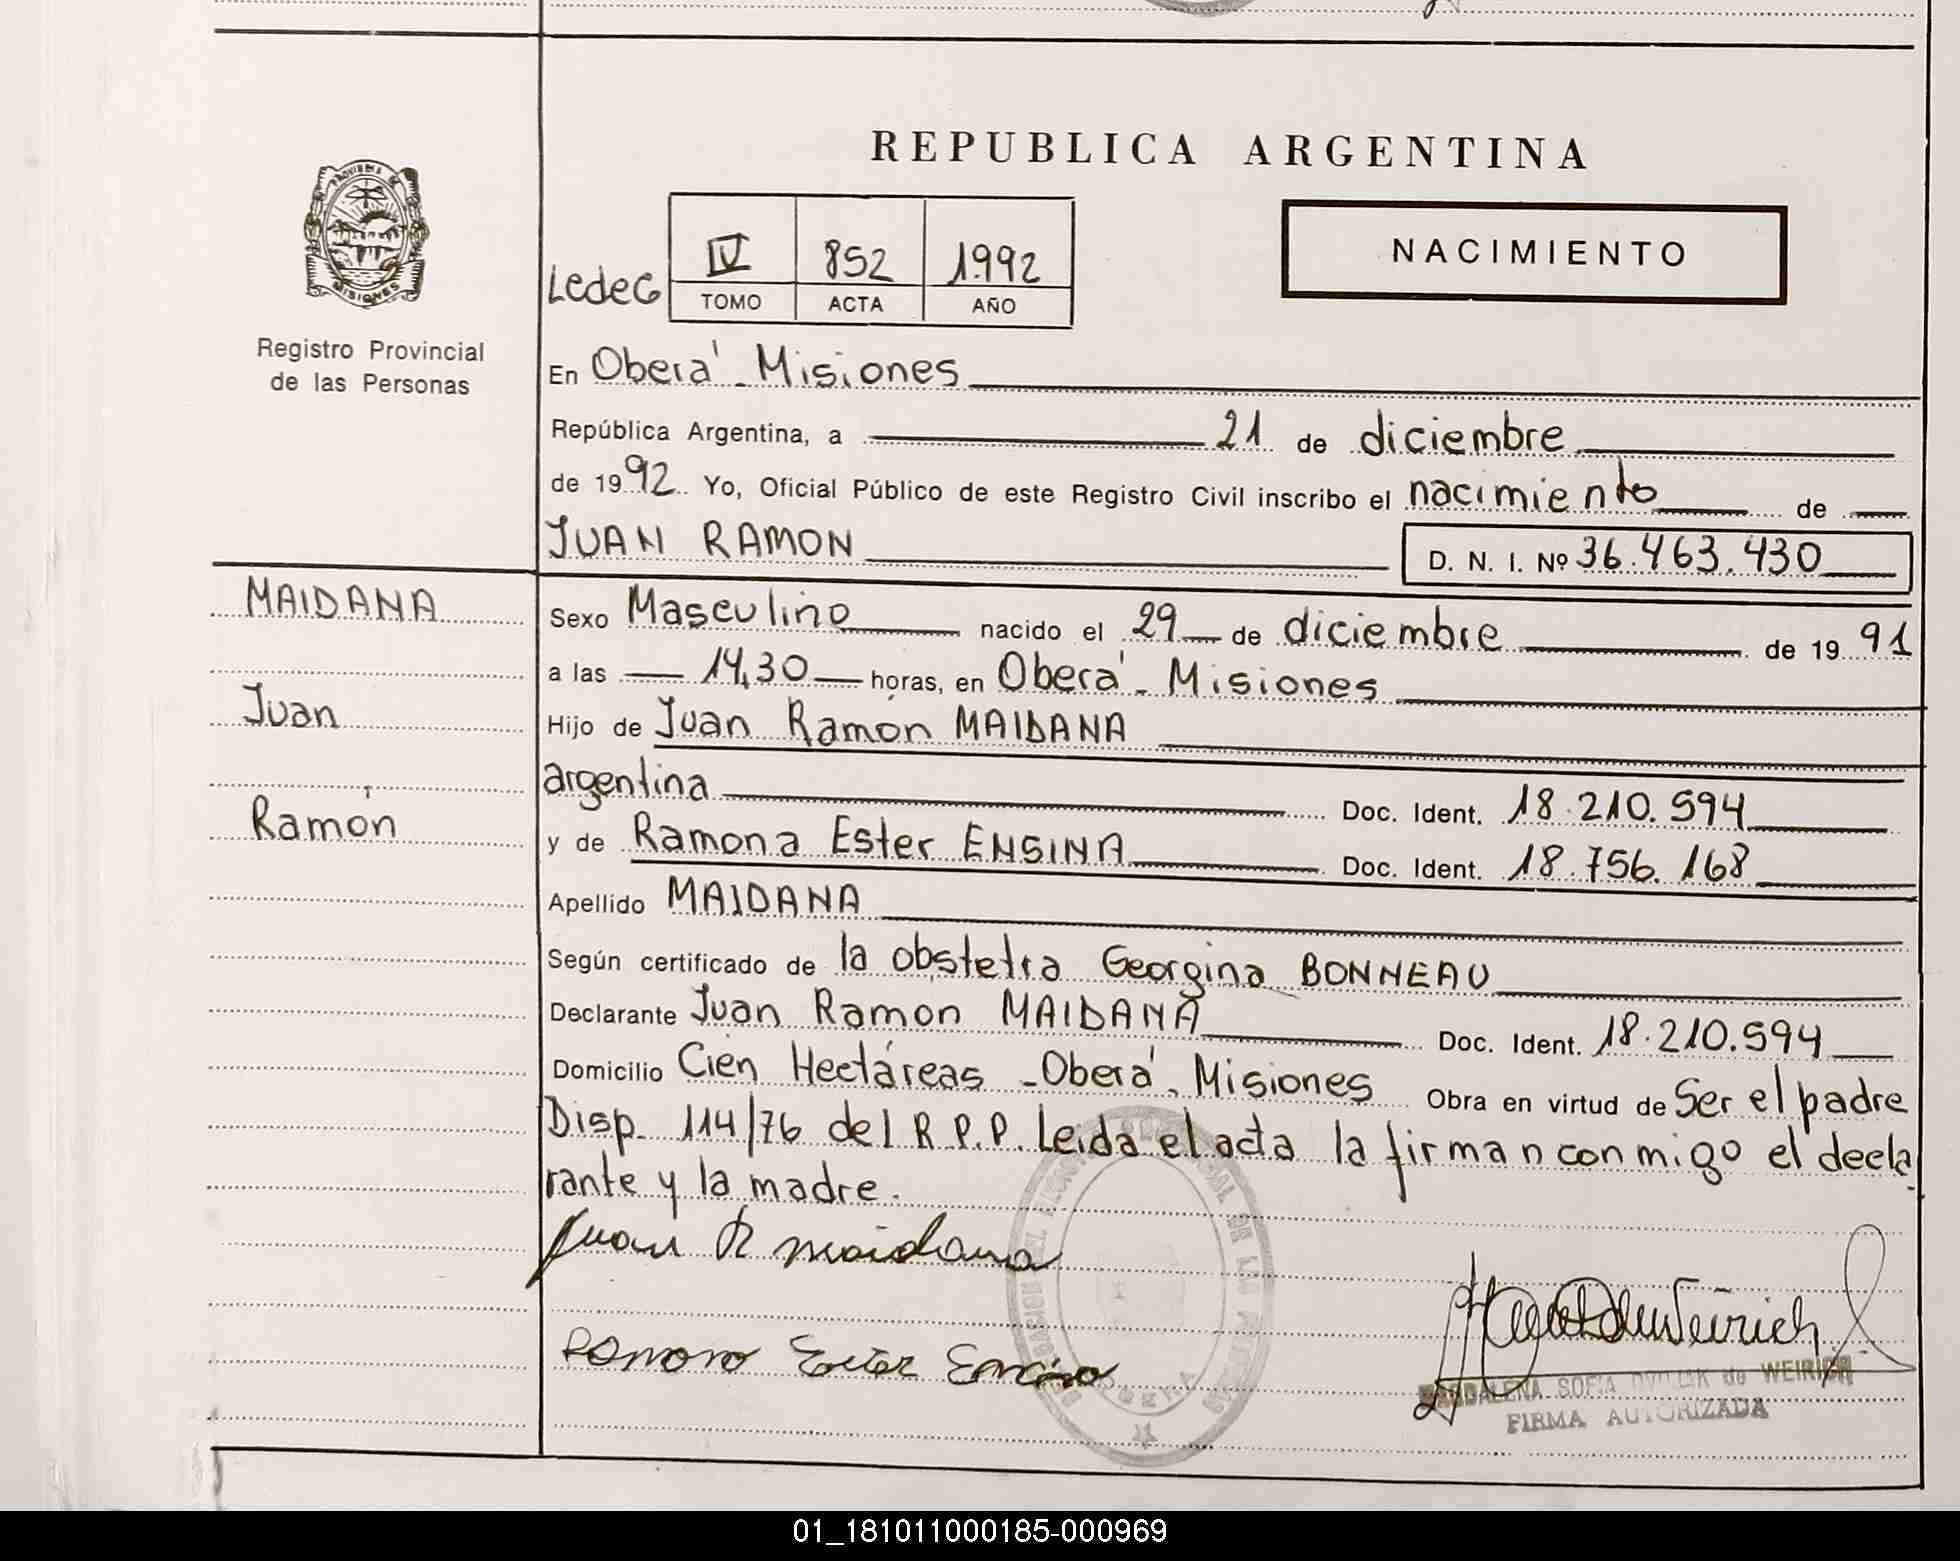 REPUBLICA ARGENTINA
PROVINCIA DE
MISIONES
Registro Provincial
de las Personas
Ledec
IV 852 1992
TOMO ACTA AÑO
NACIMIENTO
En Oberá - Misiones
República Argentina, a 21 de diciembre
de 1992. Yo, Oficial Público de este Registro Civil inscribo el nacimiento de
JUAN RAMON
D. N. I. Nº 36.463.430
MAIDANA
Juan
Ramón
Sexo Masculino nacido el 29 de diciembre de 1991
a las 14,30 horas, en Oberá - Misiones
Hijo de Juan Ramón MAIDANA
argentina Doc. Ident. 18.210.594
y de Ramona Ester ENSINA Doc. Ident. 18.756.168
Apellido MAIDANA
Según certificado de la obstetra Georgina BONNEAU
Declarante Juan Ramon MAIDANA Doc. Ident. 18.210.594
Domicilio Cien Hectáreas - Oberá, Misiones Obra en virtud de Ser el padre
Disp. 114/76 del R.P.P. Leida el acta la firman conmigo el decla
rante y la madre.
Juan R maidana
Ramona Ester Encina
MAGDALENA SOFIA de WEIRICH
FIRMA AUTORIZADA
01_181011000185-000969